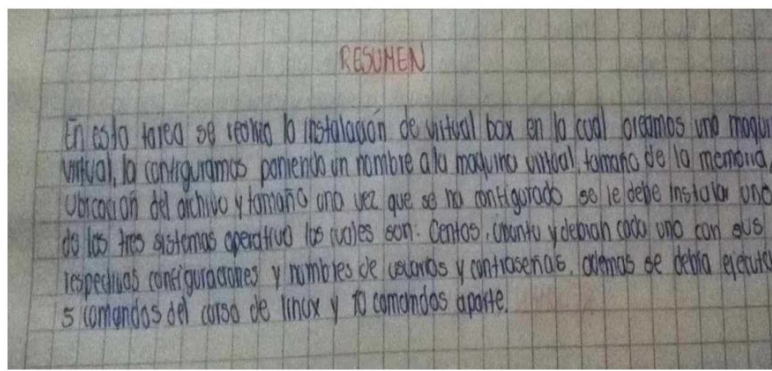 RESUMEN
En esta tarea se realizo la instalación de virtual box en la cual creamos una maqui
virtual, la configuramos poniendo un nombre a la maquina virtual, tamaño de la memoria,
ubicacion del archivo y tamaño una vez que se ha configurado se le debe instalar uno
de los tres sistemas operativo los cuales son: Centos, ubuntu y debian cada uno con sus
respectivas configuraciones y nombres de usuarios y contraseñas, ademas se debia ejecuta
5 comandos del curso de linux y 10 comandos aparte.